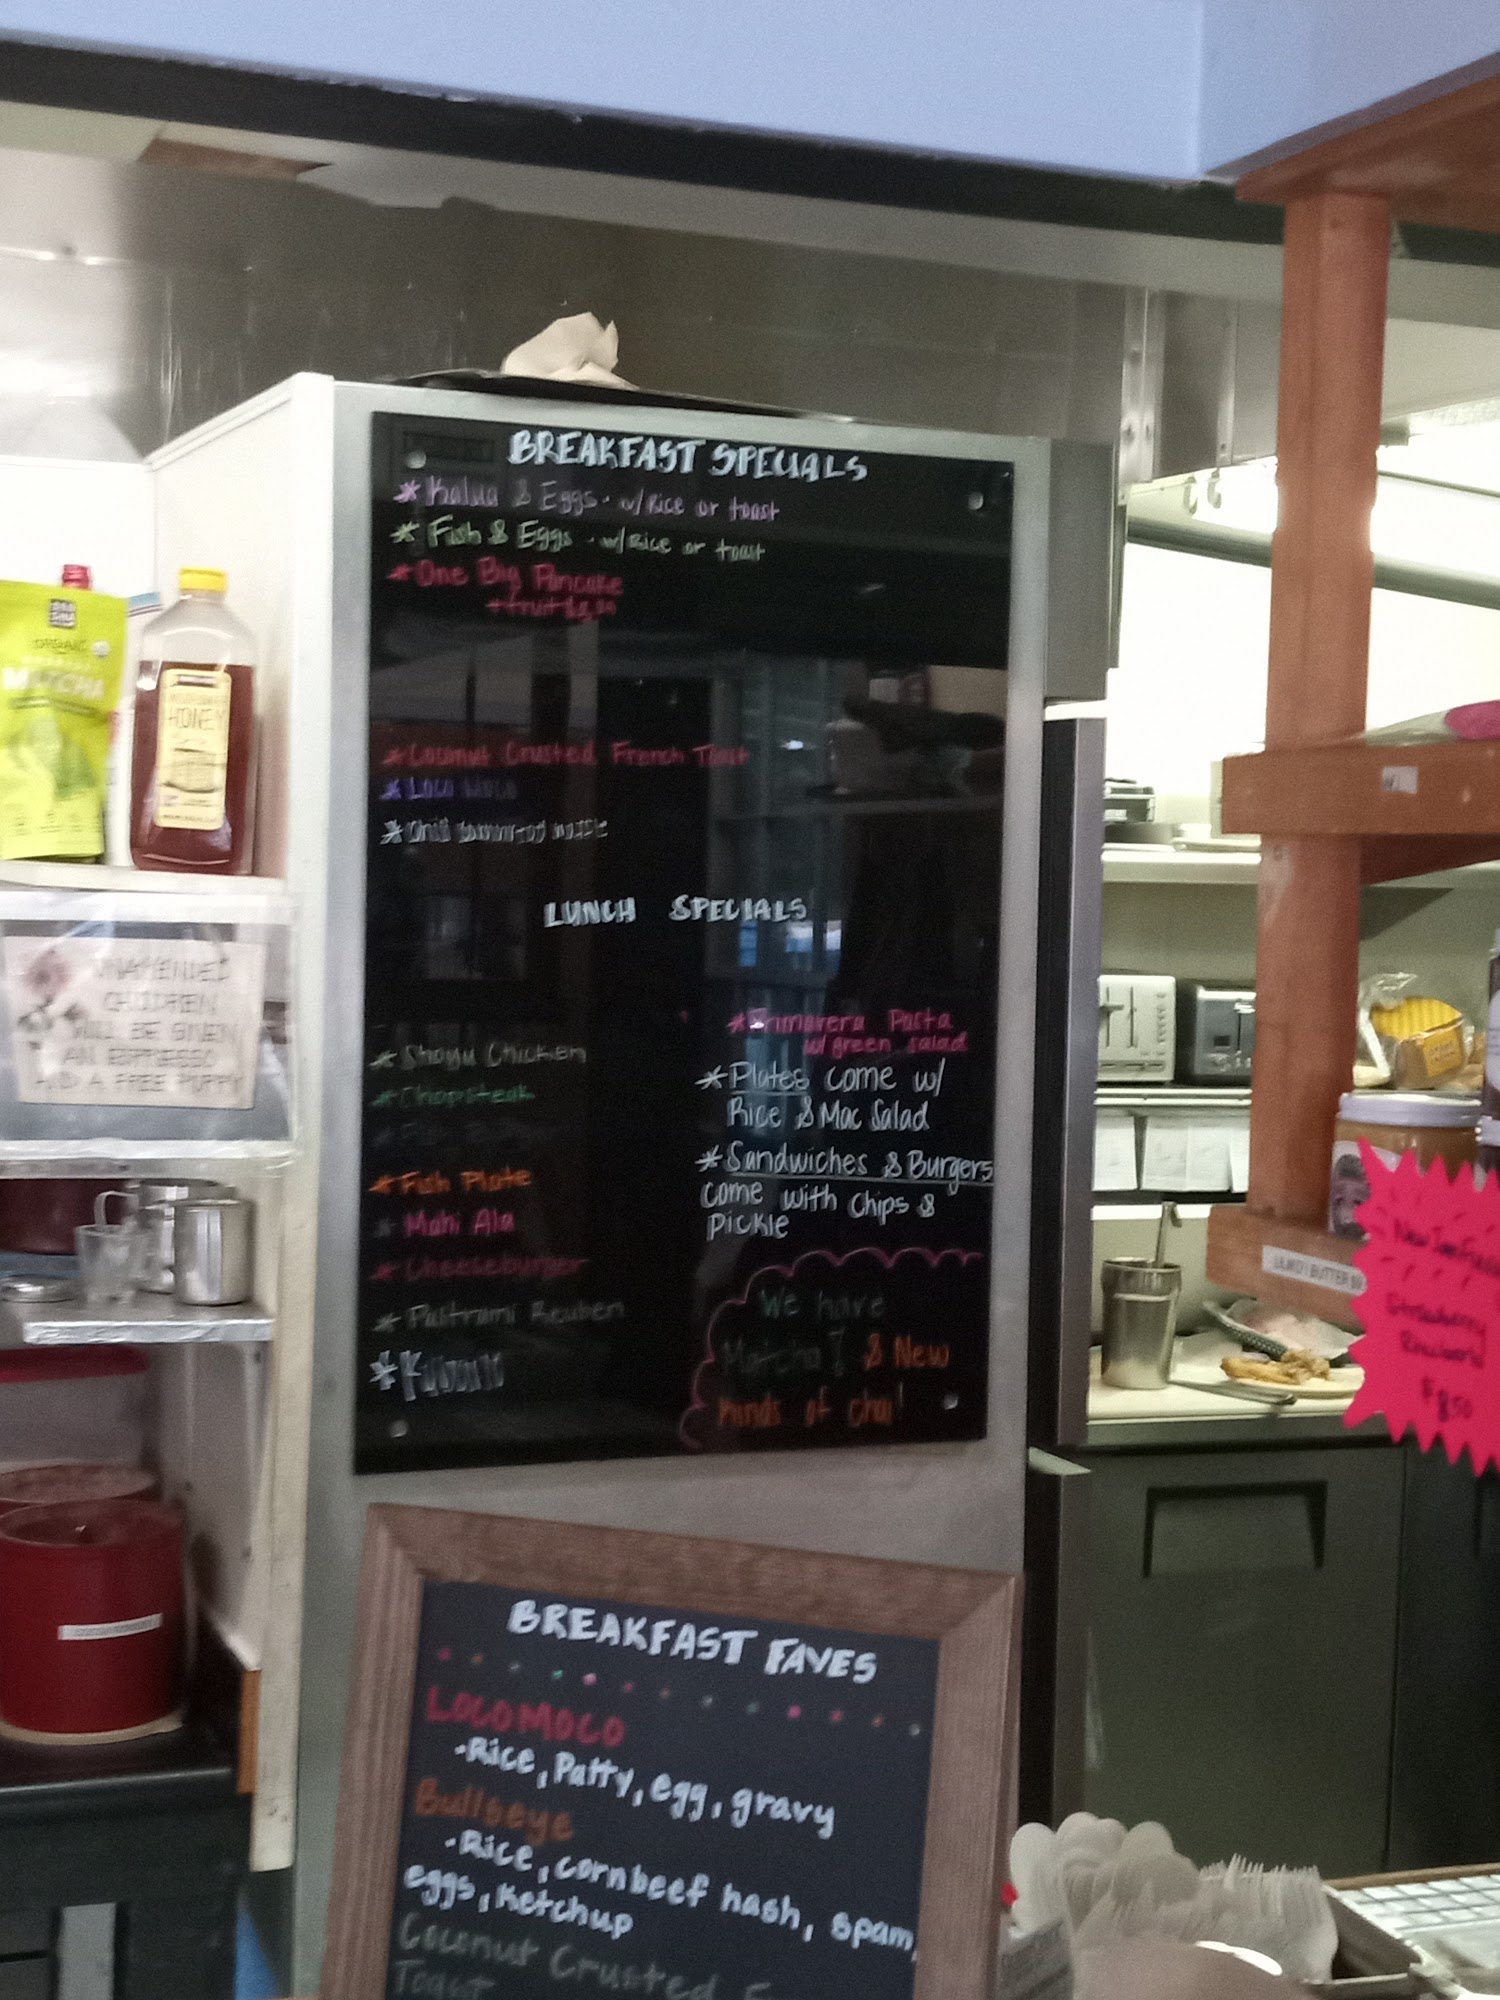 BREAKFAST SPECIALS
* Kalua & Eggs - w/ Rice or toast
* Fish & Eggs - w/ Rice or toast
* One Big Pancake
+ fruit
* Coconut Crusted French Toast
* Loco Moco
LUNCH SPECIALS
* Shoyu Chicken
* Chopsteak
* Fish Plate
* Mahi Ala
* Cheeseburger
* Pastrami Reuben
* Primavera Pasta
w/ green salad
* Plates come w/
Rice & Mac Salad
* Sandwiches & Burgers
come with Chips &
Pickle
We have
Matcha! & New
kinds of chai!
BREAKFAST FAVES
LOCOMOCO
-Rice, Patty, egg, gravy
Bullseye
-Rice, cornbeef hash, spam,
eggs, ketchup
Coconut Crusted
Toast
ORGANIC
MATCHA
HONEY
UNATTENDED
CHILDREN
WILL BE GIVEN
AN ESPRESSO
AND A FREE PUPPY
Strawberry
Rhubarb
8.50